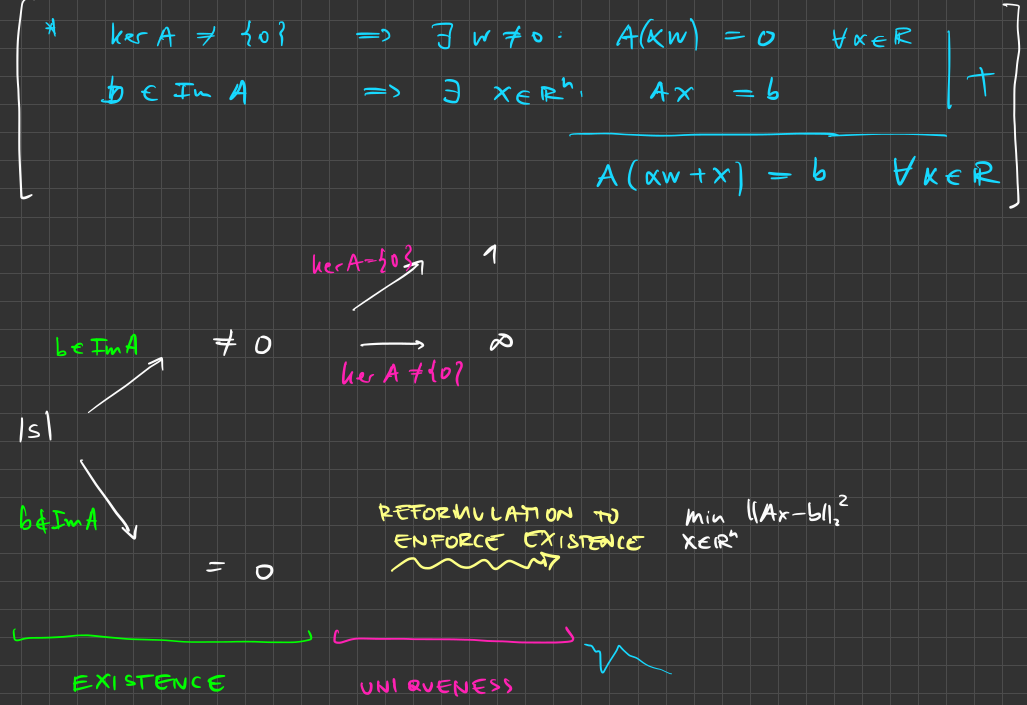 * ker A ≠ {0} => ∃ w ≠ 0. A(αw) = 0 ∀α∈ℝ
b ∈ Im A => ∃ x∈ℝⁿ. Ax = b +
A(αw+x) = b ∀α∈ℝ
ker A = {0} 1
b∈ImA ≠ 0 ∞
ker A ≠ {0}
|S|
b∉ImA
REFORMULATION TO min ||Ax-b||₂²
ENFORCE EXISTENCE x∈ℝⁿ
= 0
EXISTENCE UNIQUENESS